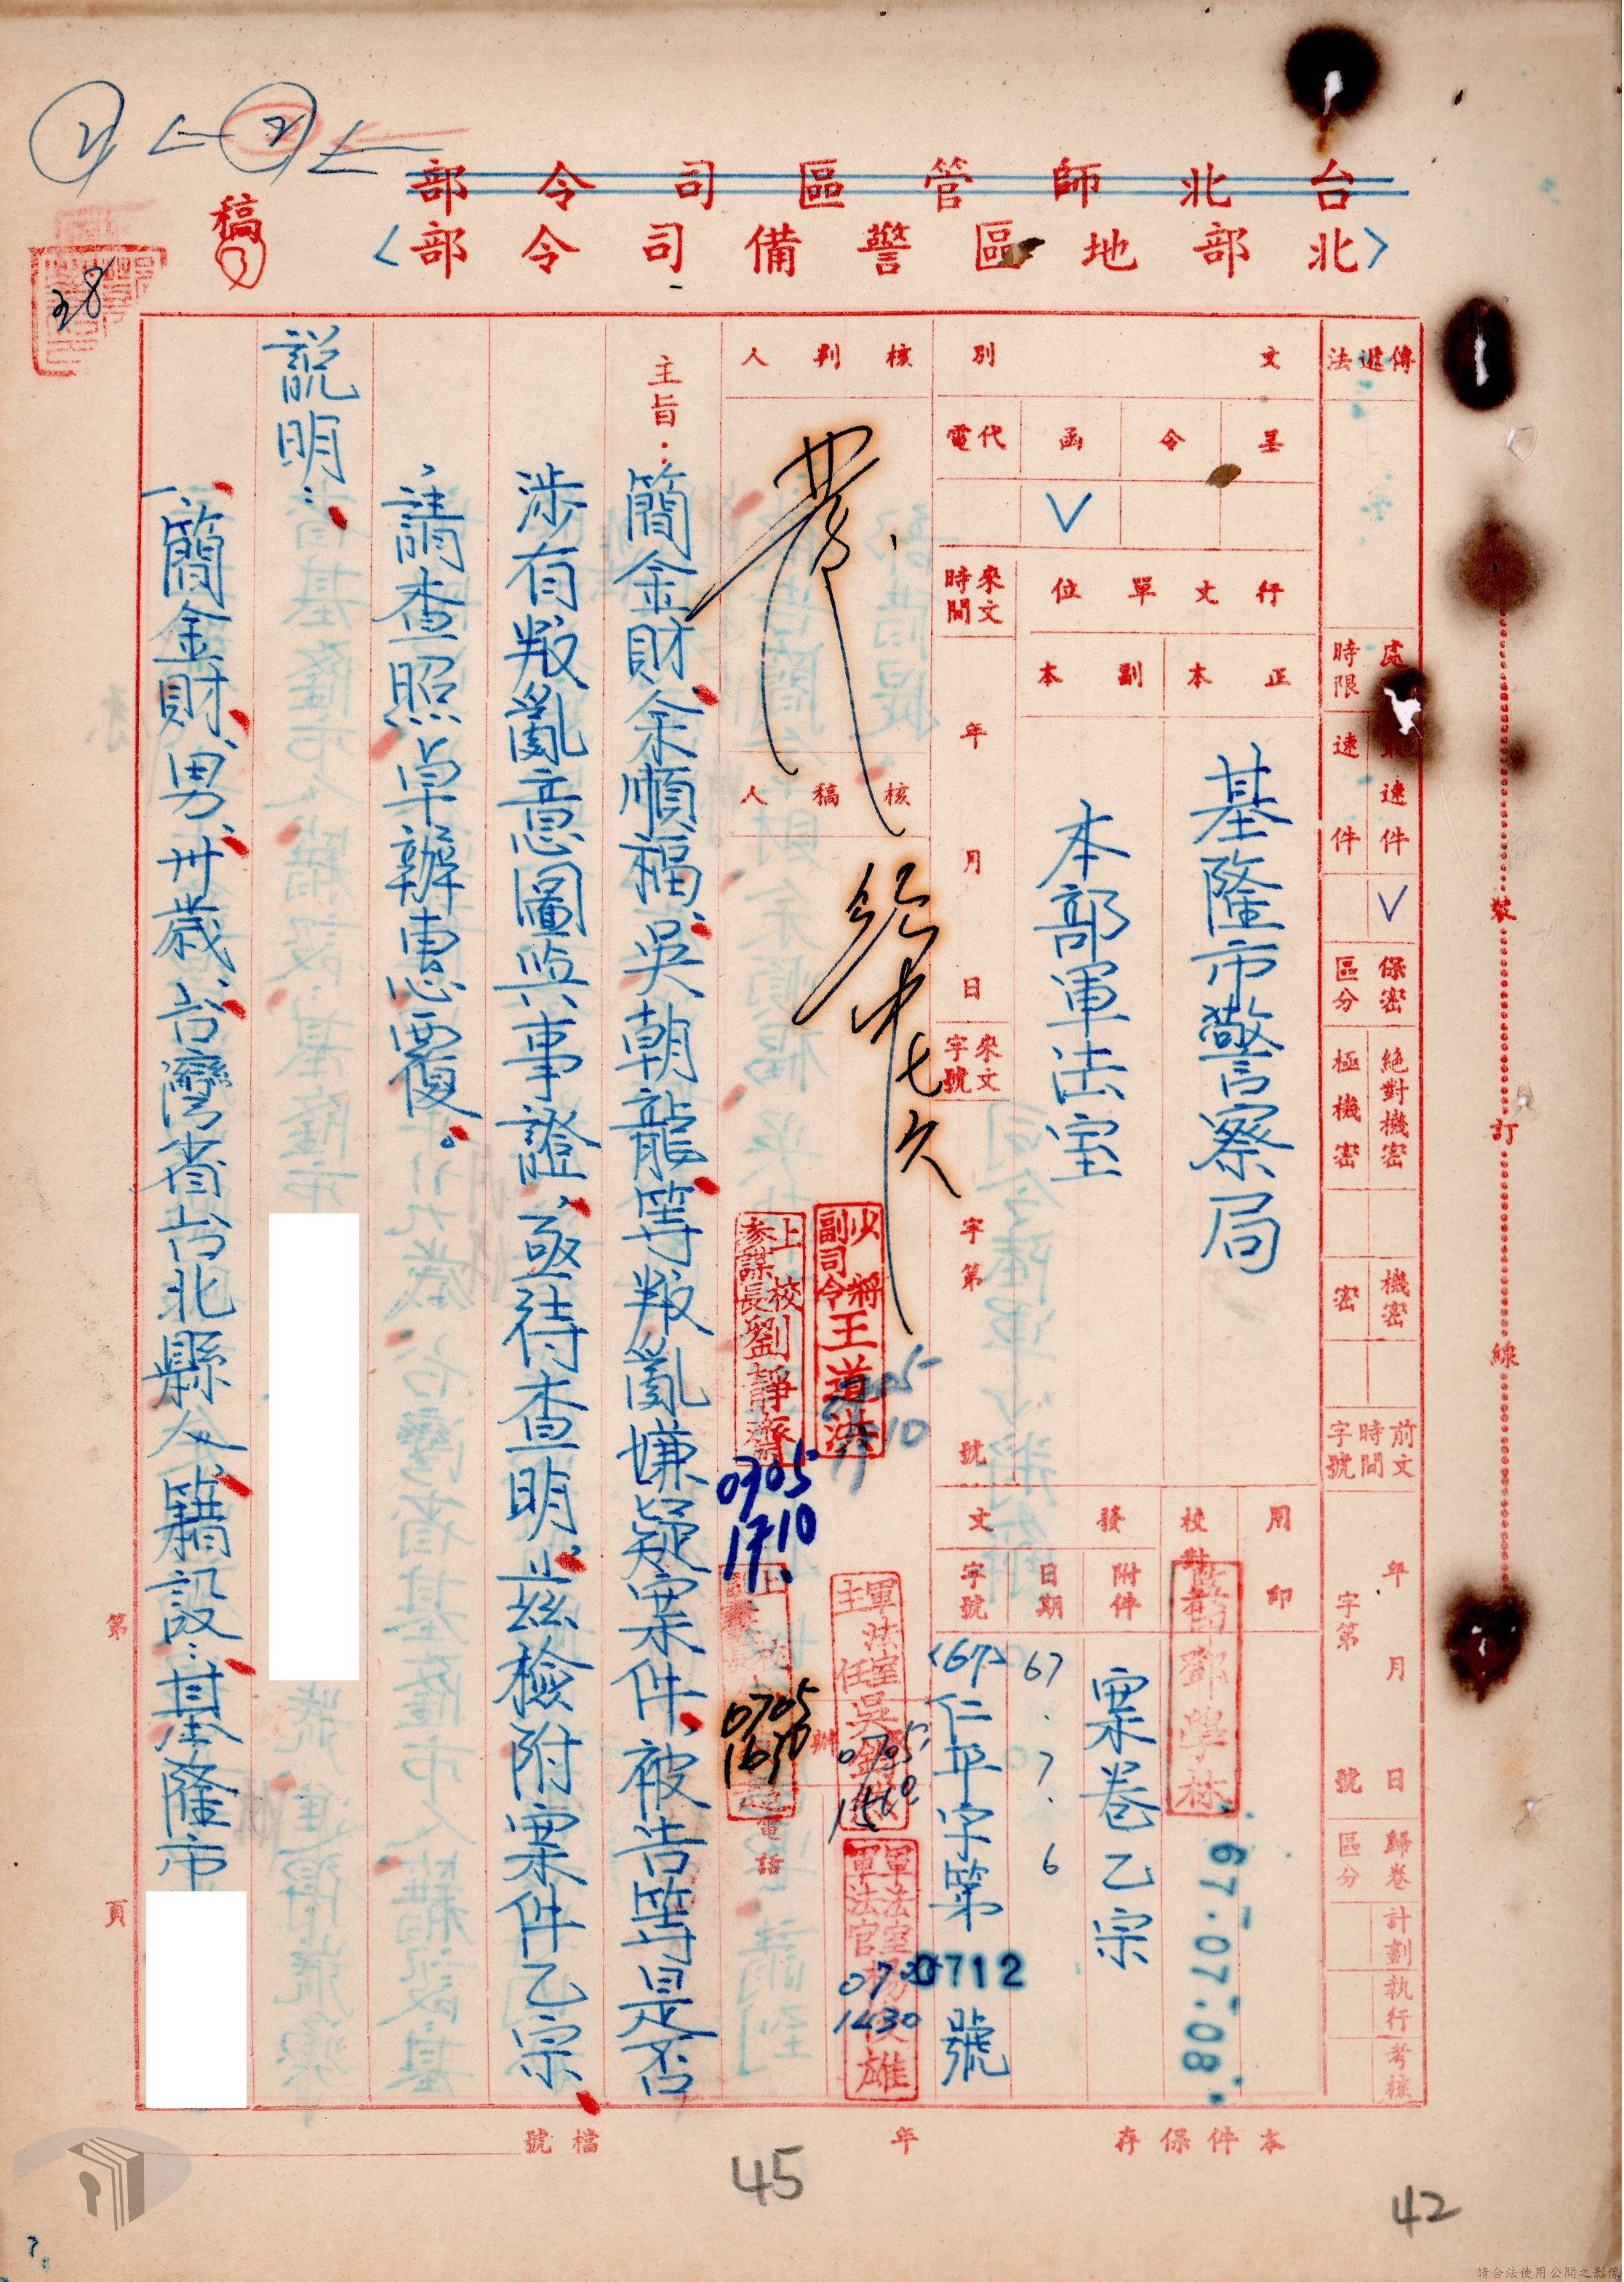 台北師管區司令部
〈北部地區警備司令部〉
稿
38
傳遞法
處理時限
最速件 ✓
速件
保密區分
絕對機密
極機密
機密
密
前文時間字號
年 月 日
字第 號
歸卷區分
計劃
執行
考核
文別
呈
令
函 ✓
代電
行文單位
正本
副本
基隆市警察局
本部軍法室
來文時間
年 月 日
來文字號
字第 號
用印
校對
監印 鄧學林
67.07.08.
發文
附件
案卷乙宗
日期
67.7.6
字號
〈67〉仁平字第0712號
核判人
核稿人
少將副司令王道洪
上校參謀長劉靜齋
0705
1710
軍法室主任吳
0705
1630
軍法室軍法官楊俊雄
1430
電話
主旨：簡金財、余順福、吳朝龍等叛亂嫌疑案件，被告等是否
涉有叛亂意圖與事證，亟待查明，茲檢附案件乙宗，
請查照卓辦惠覆。
說明：
一、簡金財、男、卅歲、台灣省台北縣人、籍設：基隆市
第 頁
檔號
年
本件保存
45
42
請合法使用公開之影像